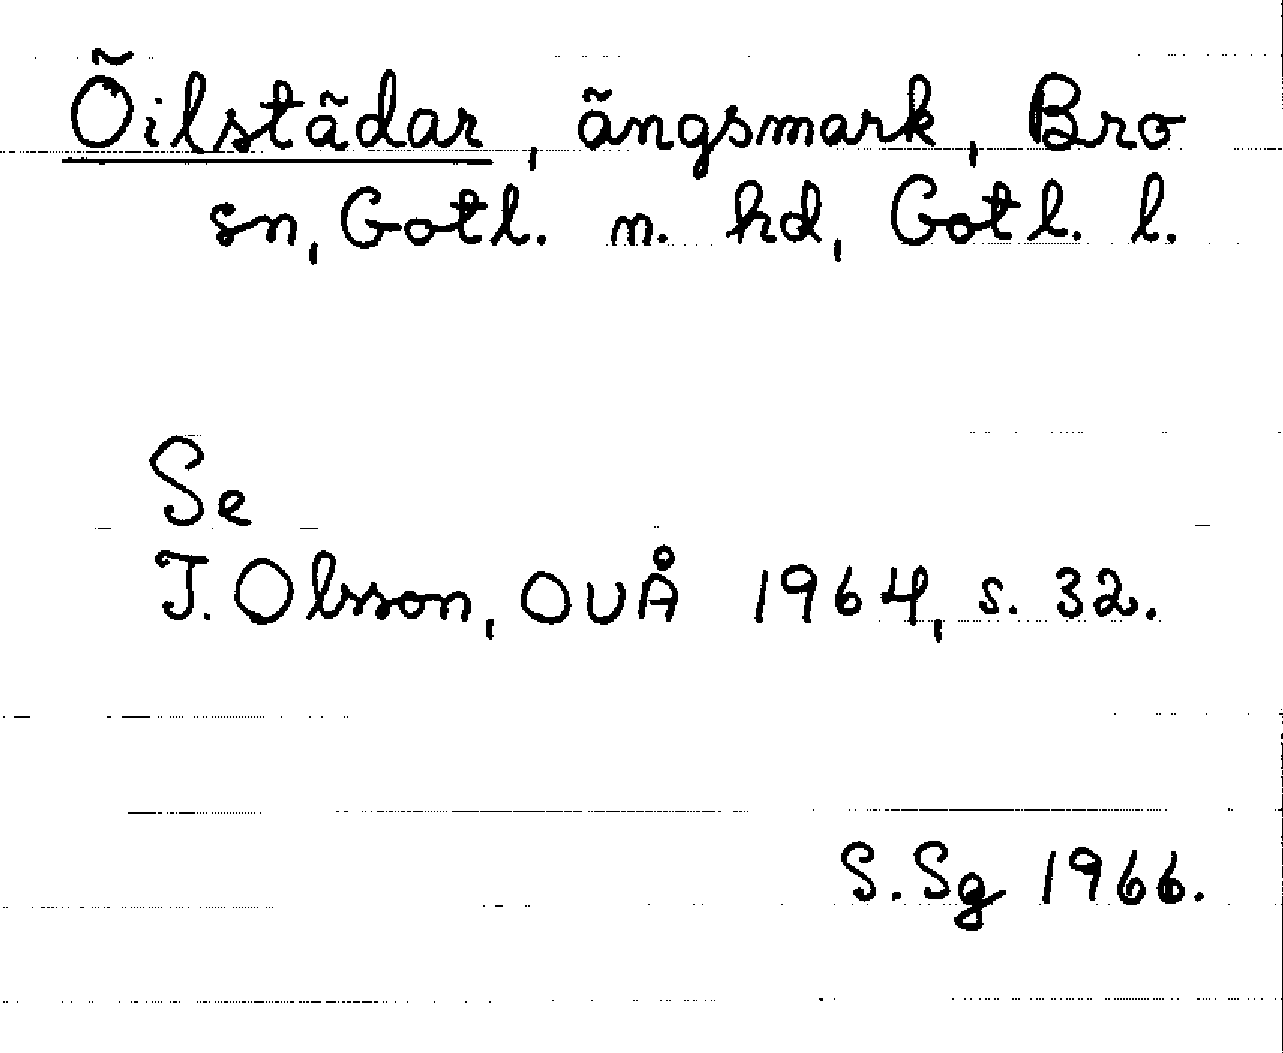 Õilstãdar, ãngsmark, Bro
sn, Gotl. n. hd, Gotl. l.
Se
I. Olsson, OUÅ 1964, s. 32.
S. Sg 1966.